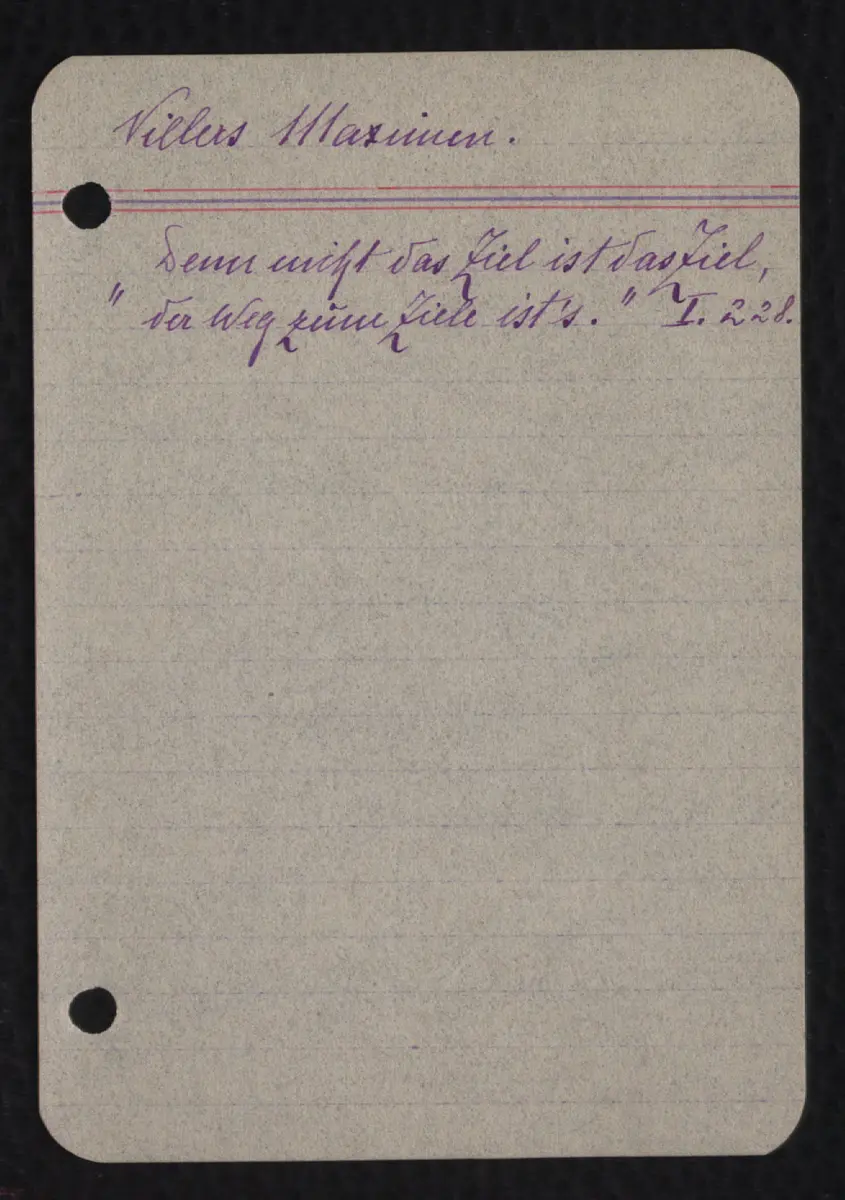 Villers Maximen.
Denn nicht das Ziel ist das Ziel,
" der Weg zum Ziele ist's. " I. 228.